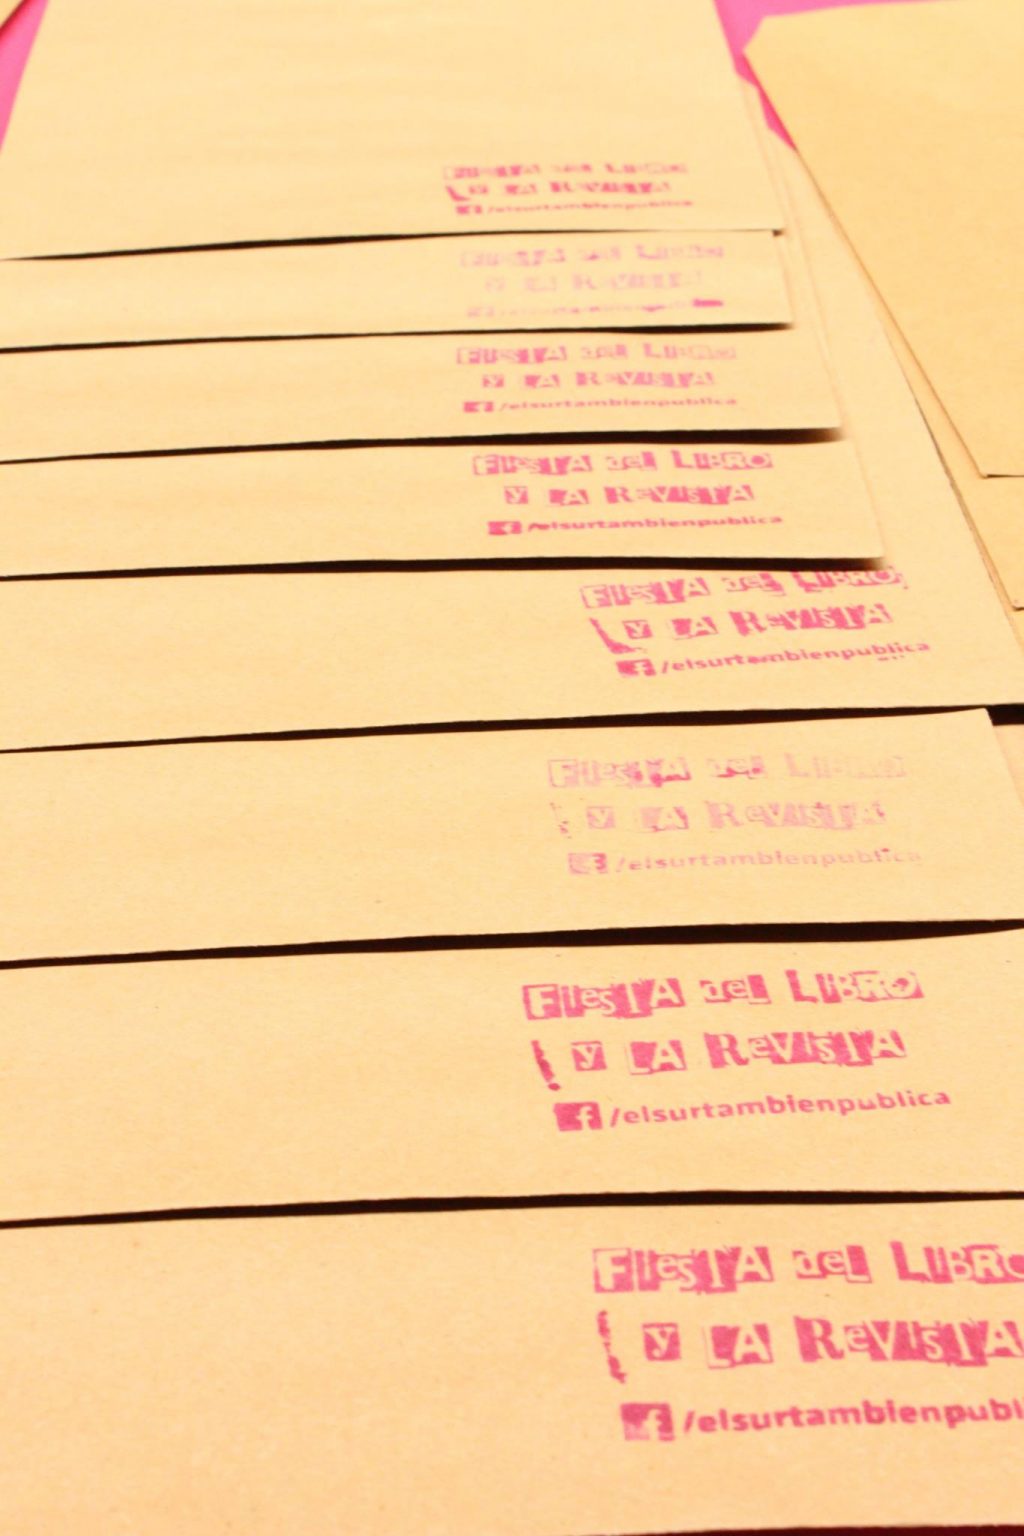 FIesTA del LIBRO
y LA ReVISTA
/elsurtambienpublica
FIesTA del LIBRO
y LA ReVISTA
FIesTA del LIBRO
y LA ReVISTA
/elsurtambienpublica
FIesTA del LIBRO
y LA ReVISTA
/elsurtambienpublica
FIesTA del LIBRO
y LA ReVISTA
/elsurtambienpublica
FIesTA del LIBRO
y LA ReVISTA
/elsurtambienpublica
FIesTA del LIBRO
y LA ReVISTA
/elsurtambienpublica
FIesTA del LIBRO
y LA ReVISTA
/elsurtambienpubl